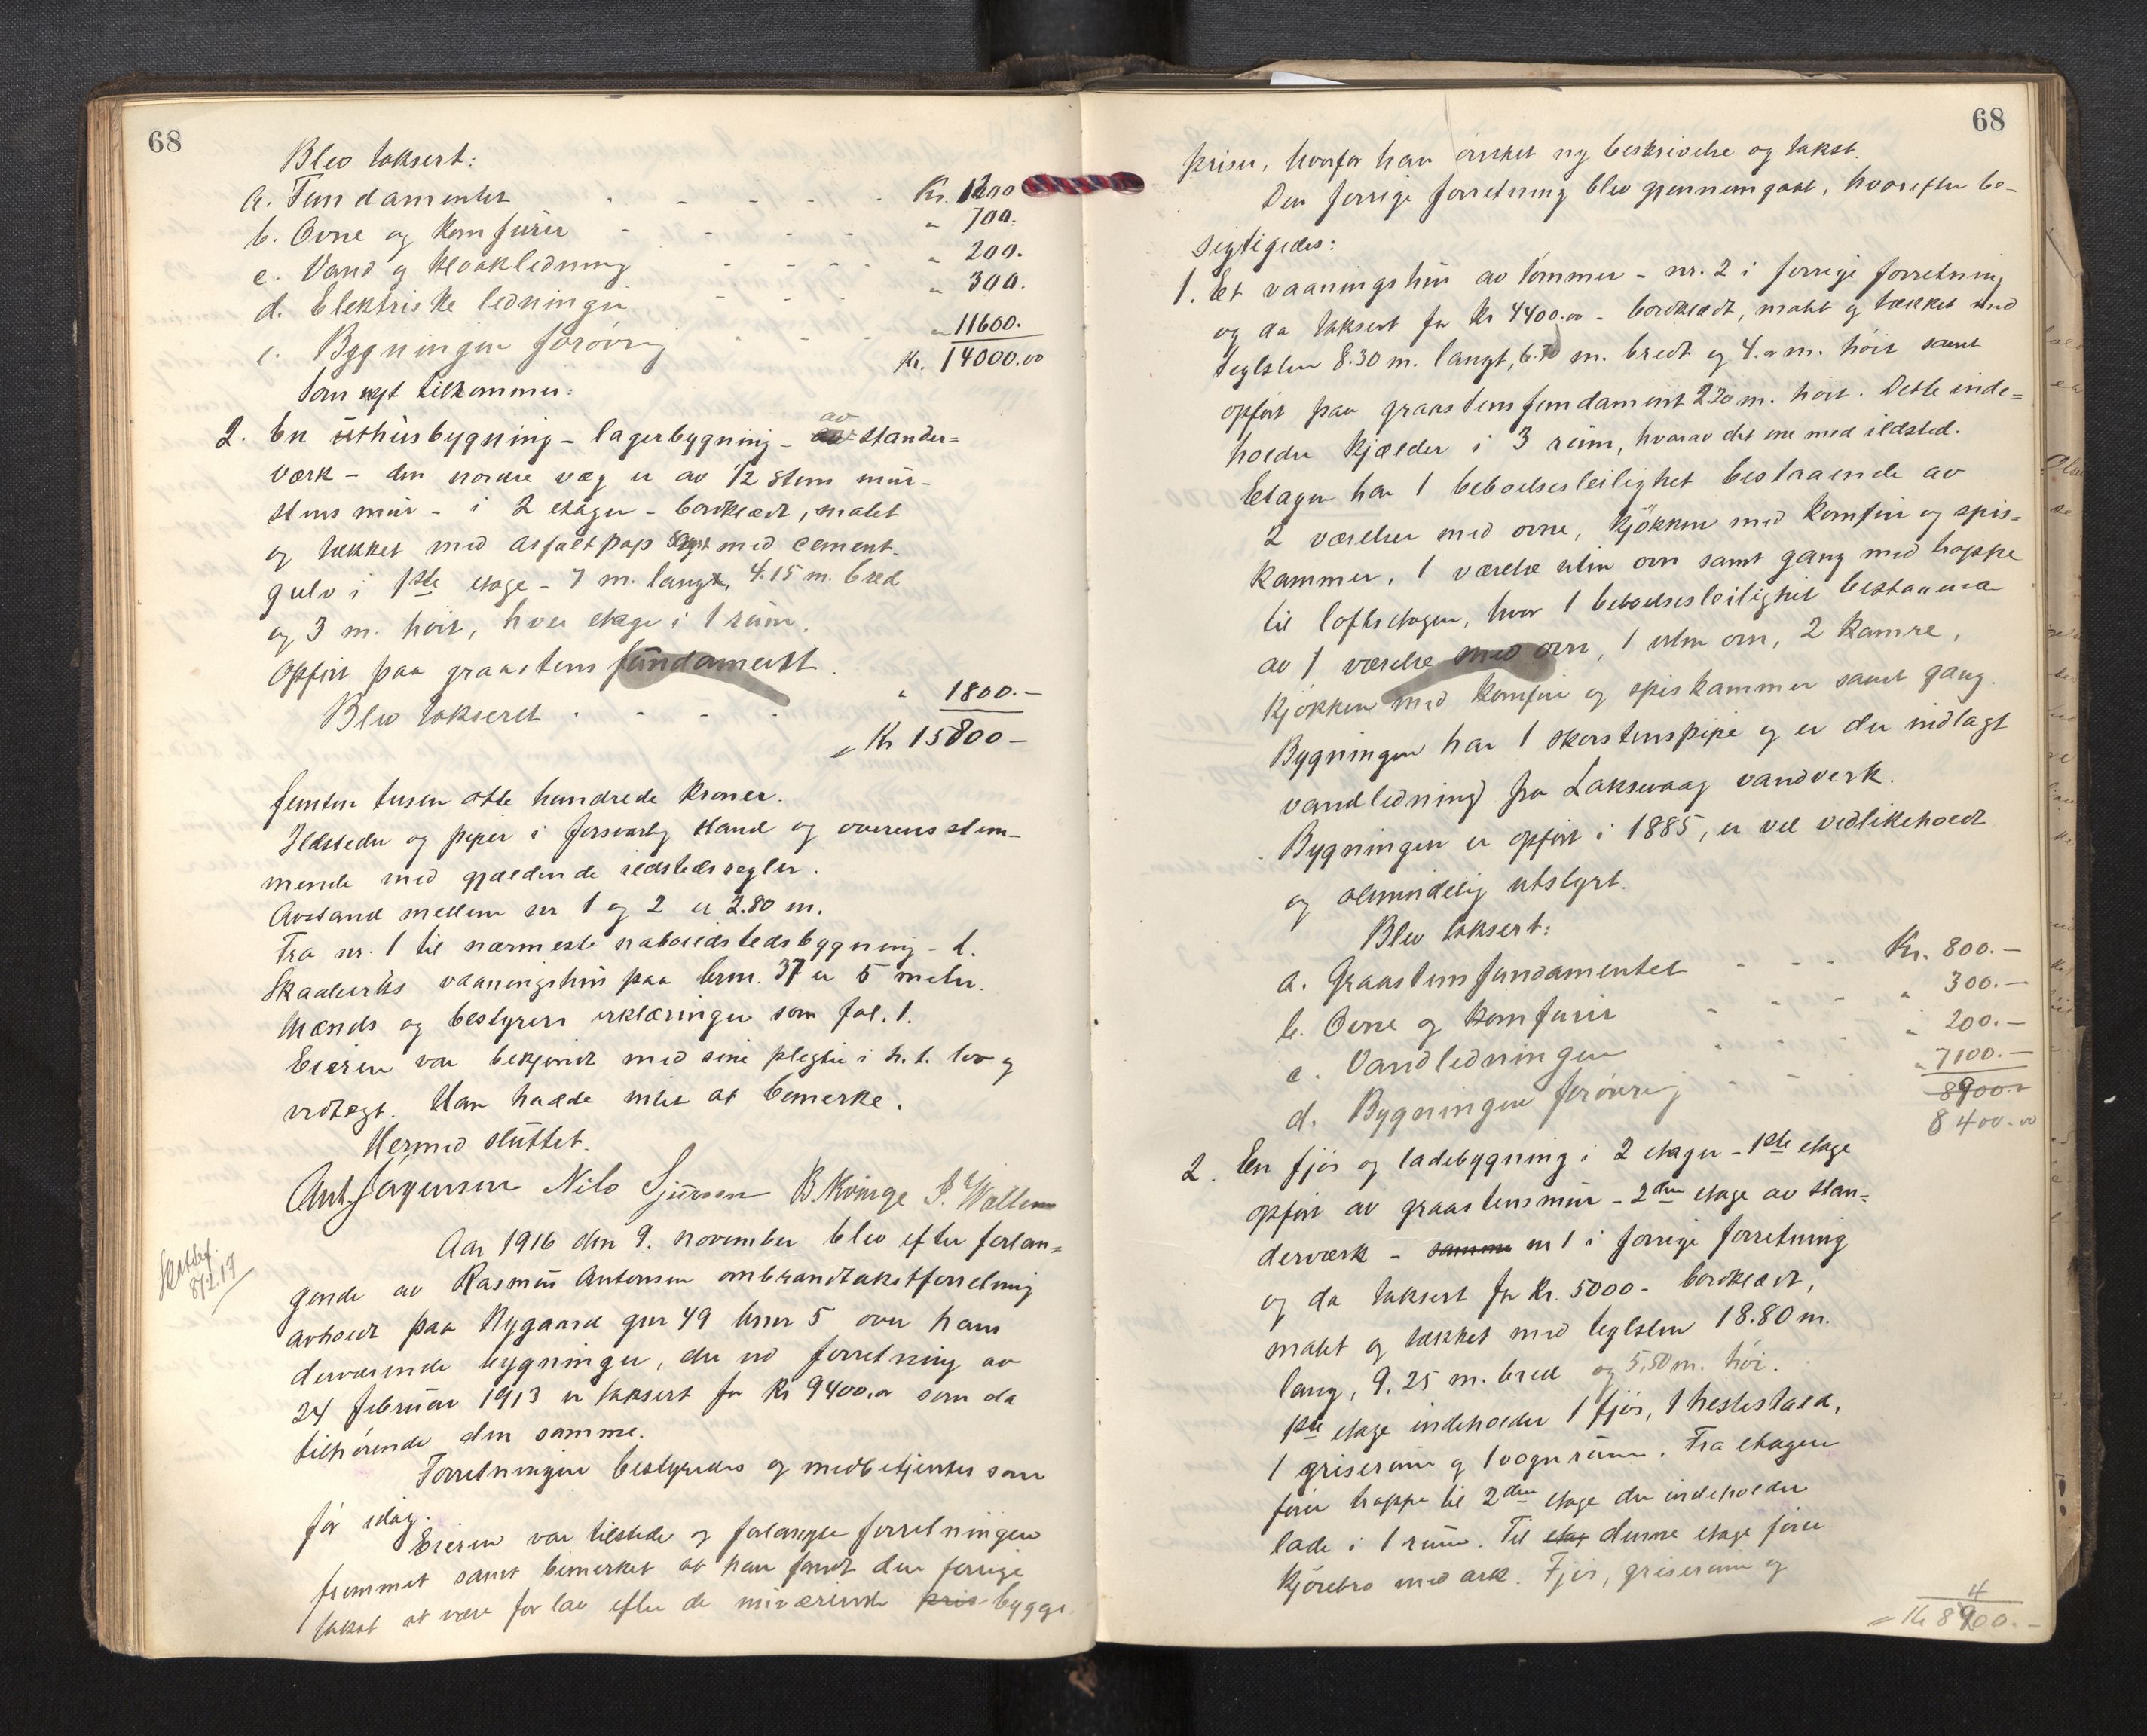 68
Blev taksert:
a. Fundamentet - - - - - Kr. 1200
b. Ovne og komfurer - - - - - " 700.
c. Vand og kloakledning - - - - " 200.
d. Elektriske ledninger - - - " 300.
e. Bygningen forøvrig - - - " 11600.
Kr. 14000.00
Som nyt tilkommer:
2. En uthusbygning - lagerbygning - av stander=
værk - den nordre væg er av 1/2 stens mur-
stens mur - i 2 etager - bordklædt, malet
og tækket med asfaltpap samt med cement-
gulv i 1ste etage - 7 m. lang, 4.15 m. bred
og 3 m. høit, hver etage i 1 rum.
Opført paa graastens fundament.
Blev takseret - - - " 1800.-
Kr 15800-
femten tusen otte hundrede kroner.
Ildsteder og piper i forsvarlig stand og overensstem-
mende med gjældende ildstedsregler.
Avstand mellem nr 1 og 2 er 2.80 m.
Fra nr. 1 til nærmeste naboildstedsbygning - L.
Skaaluriks vaaningshus paa brnr. 37 er 5 meter.
Mænds og bestyrers erklæringer som fol. 1.
Eieren var bekjendt med sine pligter i h. t. lov og
vedtægt. Han hadde intet at bemerke.
Hermed sluttet.
Ant. Jørgensen Nils Sjursen B. Kvinge J. Wallem
Skatbef.
8/2.17
Aar 1916 den 9. november blev efter forlan=
gende av Rasmus Antonsen ombrandtakstforretning
avholdt paa Nygaard gnr 49 brnr 5 over hans
derværende bygninger, der ved forretning av
24 februar 1913 er taksert for Kr 9400.00 som da
tilhørende den samme.
Forretningen bestyredes og medbetjentes som
før idag.
Eieren var tilstede og forlangte forretningen
fremmet samt bemerket at han fandt den forrige
takst at være for lav efter de nuværende pris bygge
68
priser, hvorfor han ønsket ny beskrivelse og takst.
Den forrige forretning blev gjennemgaat, hvorefter be-
sigtigedes:
1. Et vaaningshus av tømmer - nr. 2 i forrige forretning
og da taksert for Kr 4400.00 - bordklædt, malet og tækket med
teglsten 8.30 m. langt, 6.70 m. bredt og 4.00 m. høit samt
opført paa graastensfundament 2.20 m. høit. Dette inde=
holder kjælder i 3 rum, hvorav det ene med ildsted.
Etagen har 1 beboelsesleilighet bestaaende av
2 værelser med ovne, kjøkken med komfur og spis=
kammer, 1 værelse uten ovn samt gang med trappe
til loftsetagen, hvor 1 beboelsesleilighet bestaaende
av 1 værelse med ovn, 1 uten ovn, 2 kamre,
kjøkken med komfur og spiskammer samt gang.
Bygningen har 1 skorstenspipe og er der indlagt
vandledning fra Laksevaag vandverk.
Bygningen er opført i 1885, er vel vedlikeholdt
og almindelig utstyrt.
Blev taksert:
a. Graastensfundamentet - - - Kr. 800.-
b. Ovne og komfurer - - - " 300.-
c. Vandledningen - - - " 200.-
d. Bygningen forøvrig - - " 7100.-
8900.-
8400.00
2. En fjøs og ladebygning i 2 etager - 1ste etage
opført av graastensmur - 2den etage av stan=
derværk - samme nr 1 i forrige forretning
og da taksert for Kr. 5000 - bordklædt,
malet og tækket med teglsten 18.80 m.
lang, 9.25 m. bred og 5,50 m. høi.
1ste etage indeholder 1 fjøs, 1 hestestald,
1 griserum og 1 vognrum. Fra etagen
fører trappe til 2den etage der indeholder
lade i 1 rum. Til etag denne etage fører
kjørebro med ark. Fjøs, griserum og
4
Kr 8900.-